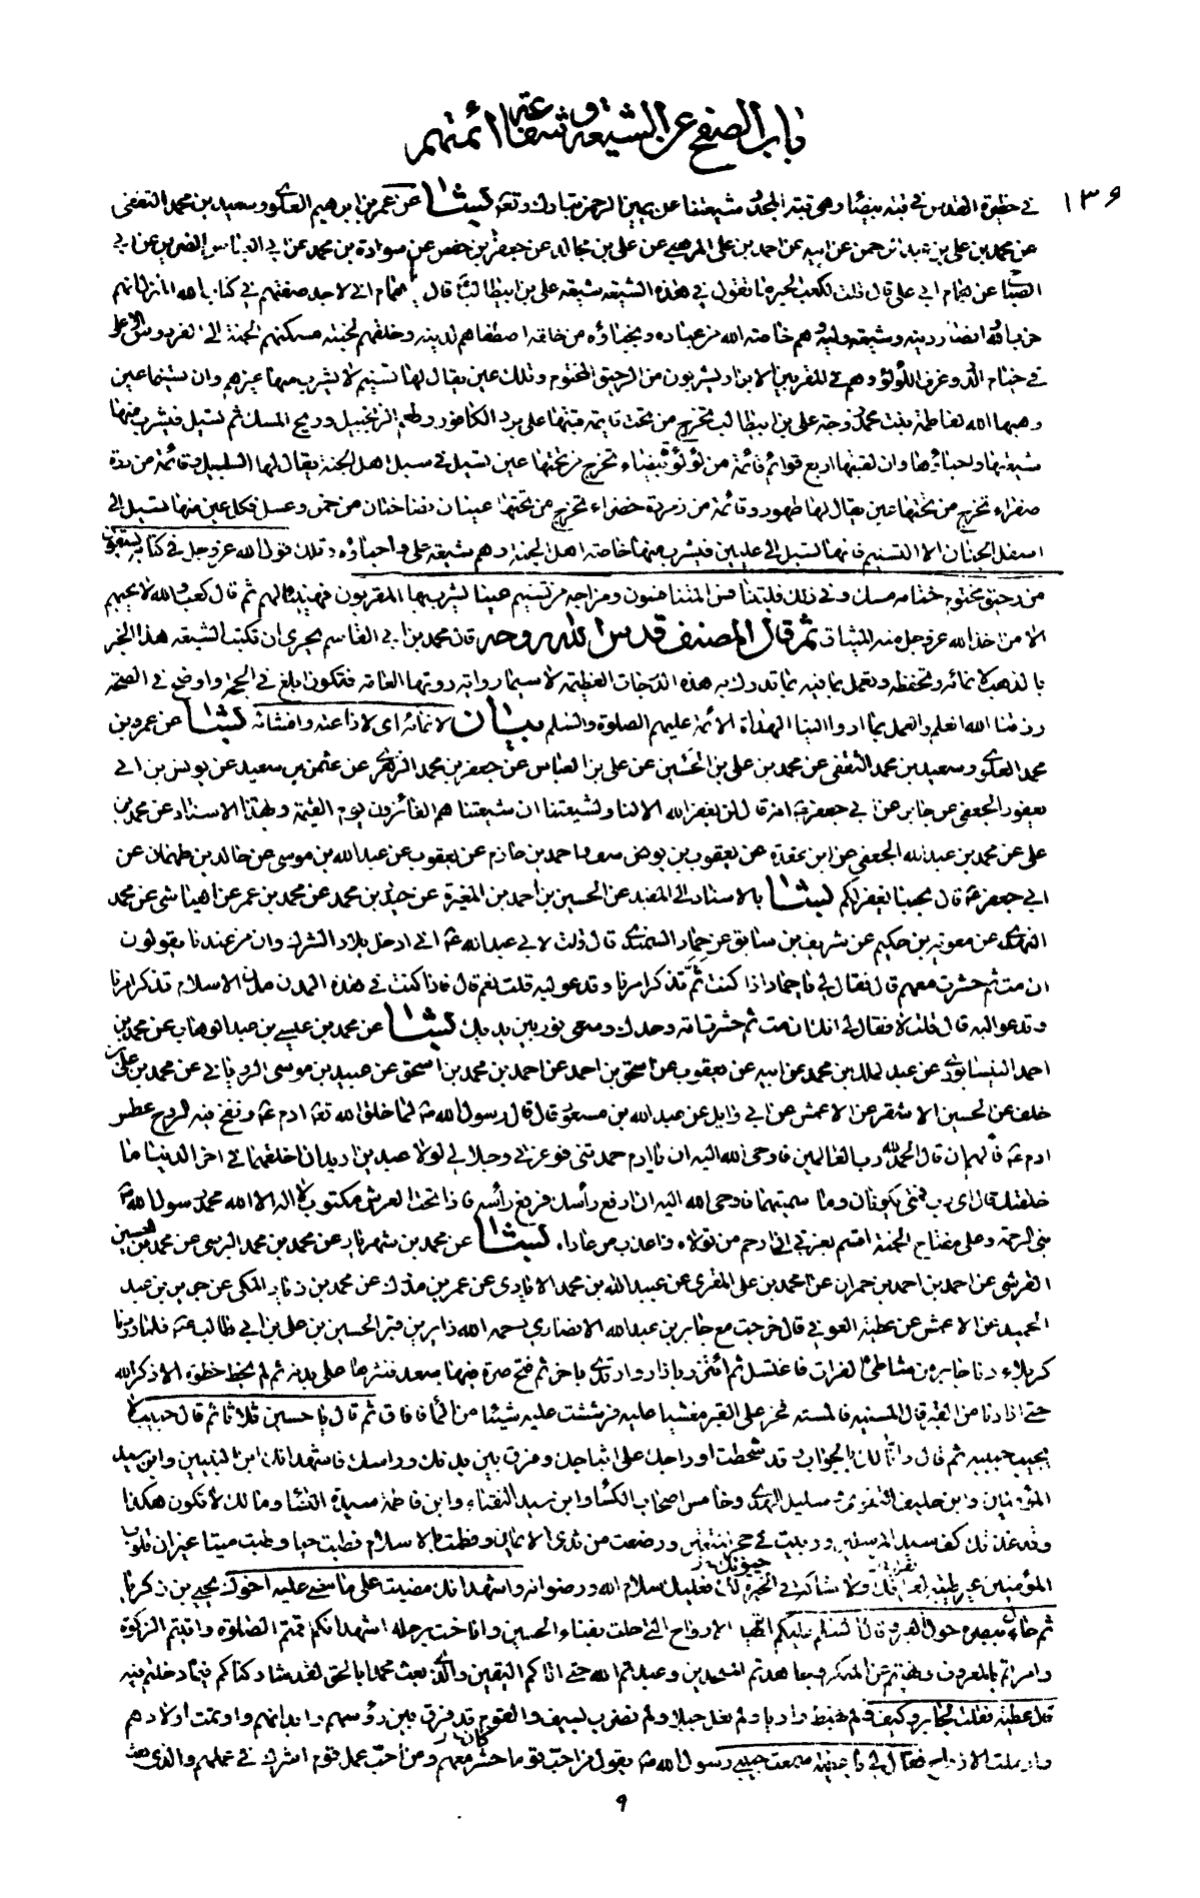 باب الصفح عن الشيعة وشفاعة ائمتهم
١٣۶
في حظيرة القدس في قبة بيضاء وهي قبة المجد شيعتنا عن يمين الرحمن تبارك وتعـ بشا عن عمر بن ابرهيم العلوى وسعيد بن محمد الثقفى
عن محمد بن علي بن عبد الرحمن عن ابيه عن احمد بن علي المرهبي عن علي بن مجالد عن جعفر بن حفص عن سوادة بن محمد عن ابي العباس الضرير عن ابي
الصباح عن همام ابي علي قال قلت لكعب الحبر ما تقول في هذه الشيعة شيعة علي بن ابيطالب قال يا همام اني لاجد صفتهم في كتاب الله المنزل انهم
حزب الله وانصار دينه وشيعة وليه وهم خاصة الله من عباده ونجباؤه من خلقه اصطفاهم لدينه وخلقهم لجنته مسكنهم الجنة الى الفردوس الاعلى
في خيام الدر وغرف اللؤلؤ وهم في المقربين الابرار يشربون من الرحيق المختوم وتلك عين يقال لها تسنيم لا يشرب منها غيرهم وان تسنيما عين
وهبها الله لفاطمة بنت محمد زوجة علي بن ابيطالب تخرج من تحت قائمة قبتها على برد الكافور وطعم الزنجبيل وريح المسك ثم تسيل فيشرب منها
شيعتها واحباؤها وان لقبتها اربع قوائم قائمة من لؤلؤ بيضاء تخرج من تحتها عين تسيل في سبل اهل الجنة يقال لها السلسبيل وقائمة من درة
صفراء تخرج من تحتها عين يقال لها طهور وقائمة من زمردة خضراء تخرج من تحتها عينان نضاختان من خمر وعسل فكل عين منها تسيل الى
اسفل الجنان الا التسنيم فانها تسيل الى عليين فيشرب منها خاصة اهل الجنة وهم شيعة علي واحباؤه وذلك قول الله عز وجل في كتابه يسقون
من رحيق مختوم ختامه مسك وفي ذلك فليتنافس المتنافسون ومزاجه من تسنيم عينا يشرب بها المقربون فهنيئا لهم ثم قال كعب والله لا يحبهم
الا من اخذ الله عز وجل منه الميثاق ثم قال المصنف قدس الله روحه قال محمد بن ابي القاسم يحرى ان تكتب الشيعة هذا الخبر
بالذهب لا نمائه وتحفظه وتعمل بما فيه بما تدرك به هذه الدرجات العظيمة لا سيما رواية روتها العامة فتكون ابلغ في الحجة واوضح في الصحة
رزقنا الله العلم والعمل بما ادوا الينا الهداة الائمة عليهم الصلوة والسلم بيان لا نمائه اى لاذاعته وافشائه بشا عن عمر بن
محمد العلوى وسعيد بن محمد الثقفى عن محمد بن علي بن الحسين عن علي بن العباس عن جعفر بن محمد الزهرى عن عثمن بن سعيد عن يونس بن ابي
يعفور الجعفي عن جابر عن ابي جعفر ع انه قال لن يغفر الله الا لنا ولشيعتنا ان شيعتنا هم الفائزون يوم القيمة وبهذا الاسناد عن محمد بن
علي عن محمد بن عبد الله الجعفي عن ابن عقدة عن يعقوب بن يوسف واحمد بن حازم عن يعقوب عن عبد الله بن موسى عن خالد بن طهمان عن
ابي جعفر ع قال بحبنا يغفر لكم بشا بالاسناد الى المفيد عن الحسين بن احمد بن المغيرة عن حيدر بن محمد عن محمد بن عمر عن العياشى عن محمد
النهدى عن معوية بن حكيم عن شريف بن سابق عن حماد السمندى قال قلت لابي عبد الله ع اني ادخل بلاد الشرك وان من عندنا يقولون
ان مت ثم حشرت معهم قال فقال لي يا حماد اذا كنت ثم تذكر امرنا وتدعو اليه قلت نعم قال فاذا كنت في هذه المدن مدن الاسلام تذكر امرنا
وتدعو اليه قال قلت لا فقال لي انك ان مت ثم حشرت امة وحدك وسعى نورك بين يديك بشا عن محمد بن عيسى بن عبد الوهاب عن محمد بن
احمد النيسابورى عن عبد الملك بن محمد عن ابيه عن يعقوب عن اسحق بن احمد عن احمد بن محمد بن اسحق عن عبيد بن موسى الرويانى عن محمد بن علي بن
خلف عن الحسين الاشقر عن الاعمش عن ابي وايل عن عبد الله بن مسعود قال قال رسول الله ص لما خلق الله تعـ ادم ع ونفخ فيه الروح عطس
ادم ع فالهم ان قال الحمد لله رب العالمين فاوحى الله اليه ان يا ادم حمدتنى فوعزتي وجلالي لولا عبدين اريدان اخلقهما في اخر الدنيا ما
خلقتك قال اى رب فمتى يكونان وما سميتهما فاوحى الله اليه ان ارفع رأسك فرفع رأسه فاذا تحت العرش مكتوب لا اله الا الله محمد رسول الله ص
نبي الرحمة وعلي مفتاح الجنة اقسم بعزتي اني ارحم من تولاه واعذب من عاداه بشا عن محمد بن شهريار عن محمد بن محمد البرسي عن محمد بن الحسين
القرشي عن احمد بن احمد بن حمران عن محمد بن علي المقرى عن عبيد الله بن محمد الايادى عن عمر بن مدرك عن محمد بن زياد المكي عن جرير بن عبد
الحميد عن الاعمش عن عطية العوفي قال خرجت مع جابر بن عبد الله الانصاري رحمه الله زايرين قبر الحسين بن علي بن ابي طالب ع فلما وردنا
كربلاء دنا جابر من شاطئ الفرات فاغتسل ثم ائتزر بازار وارتدى باخر ثم فتح صرة فيها سعد فنثرها على بدنه ثم لم يخط خطوة الا ذكر الله
حتى اذا دنا من القبر قال المسنيه فالمسته فخر على القبر مغشيا عليه فرششت عليه شيئا من الماء فافاق ثم قال يا حسين ثلاثا ثم قال حبيب لا
يجيب حبيبه ثم قال وانى لك بالجواب وقد شحطت اوداجك على اثباجك وفرق بين بدنك وراسك فاشهد انك ابن النبيين وابن سيد
المؤمنين وابن حليف التقوى وسليل الهدى وخامس اصحاب الكساء وابن سيد النقباء وابن فاطمة سيدة النساء وما لك لا تكون هكذا
وقد غذتك كف سيد المرسلين وربيت في حجر المتقين ورضعت من ثدى الايمان وفطمت بالاسلام فطبت حيا وطبت ميتا غير ان قلوب
المؤمنين غير طيبة لفراقك ولا شاكة في الخيرة لك فعليك سلام الله ورضوانه واشهد انك مضيت على ما مضى عليه اخوك يحيى بن زكريا
ثم جال ببصره حول القبر وقال السلام عليكم ايتها الارواح التى حلت بفناء الحسين واناخت برحله اشهد انكم اقمتم الصلوة واتيتم الزكوة
وامرتم بالمعروف ونهيتم عن المنكر وجاهدتم الملحدين وعبدتم الله حتى اتاكم اليقين والذى بعث محمدا بالحق لقد شاركناكم فيما دخلتم فيه
قال عطية فقلت لجابر وكيف ولم نهبط واديا ولم نعل جبلا ولم نضرب بسيف والقوم قد فرق بين رؤسهم وابدانهم واوتمت اولادهم
وارملت الازواج فقال لي يا عطية سمعت حبيبي رسول الله ص يقول من احب قوما حشر معهم ومن احب عمل قوم اشرك في عملهم والذى بعث
۹